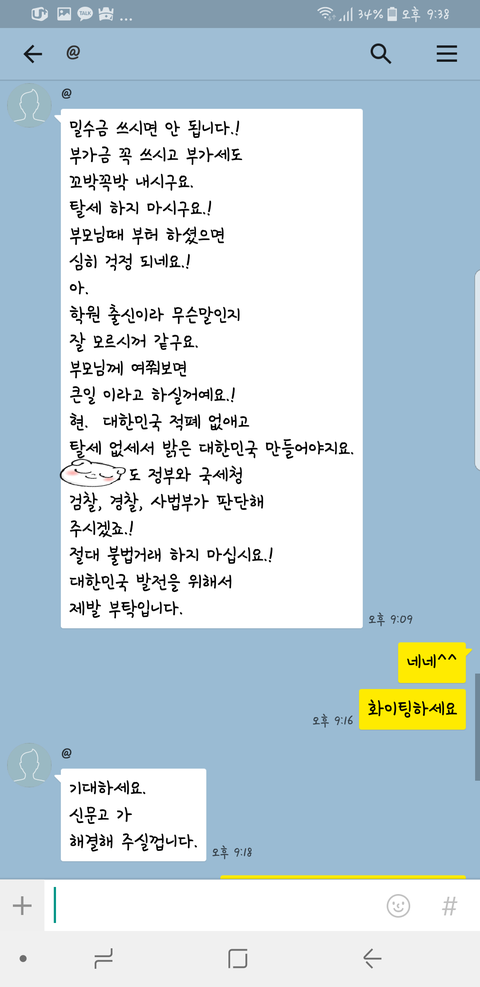 34% 오후 9:38
@
@
밀수금 쓰시면 안 됩니다.!
부가금 꼭 쓰시고 부가세도
꼬박꼭박 내시구요.
탈세 하지 마시구요.!
부모님때 부터 하셨으면
심히 걱정 되네요.!
아.
학원 출신이라 무슨말인지
잘 모르시꺼 같구요.
부모님께 여쭤보면
큰일 이라고 하실꺼예요.!
현. 대한민국 적폐 없애고
탈세 없세서 밝은 대한민국 만들어야지요.
도 정부와 국세청
검찰, 경찰, 사법부가 판단해
주시겠죠.!
절대 불법거래 하지 마십시요.!
대한민국 발전을 위해서
제발 부탁입니다.
오후 9:09
네네^^
화이팅하세요
오후 9:16
@
기대하세요.
신문고 가
해결해 주실껍니다.
오후 9:18
#